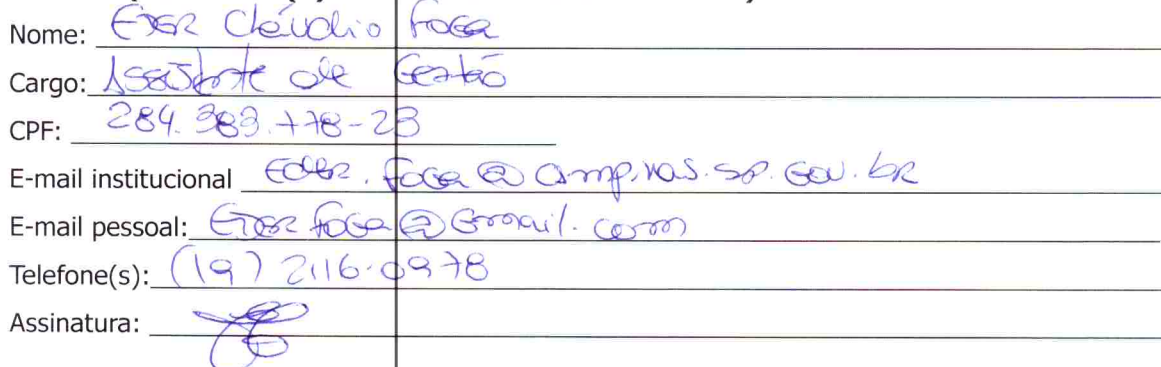 Nome: Eder Cláudio Foga
Cargo: Assistente de Gestão
CPF: 284.383.778-23
E-mail institucional Eder.foga@campinas.sp.gov.br
E-mail pessoal: Ederfoga@Gmail.com
Telefone(s): (19) 2116.0978
Assinatura: